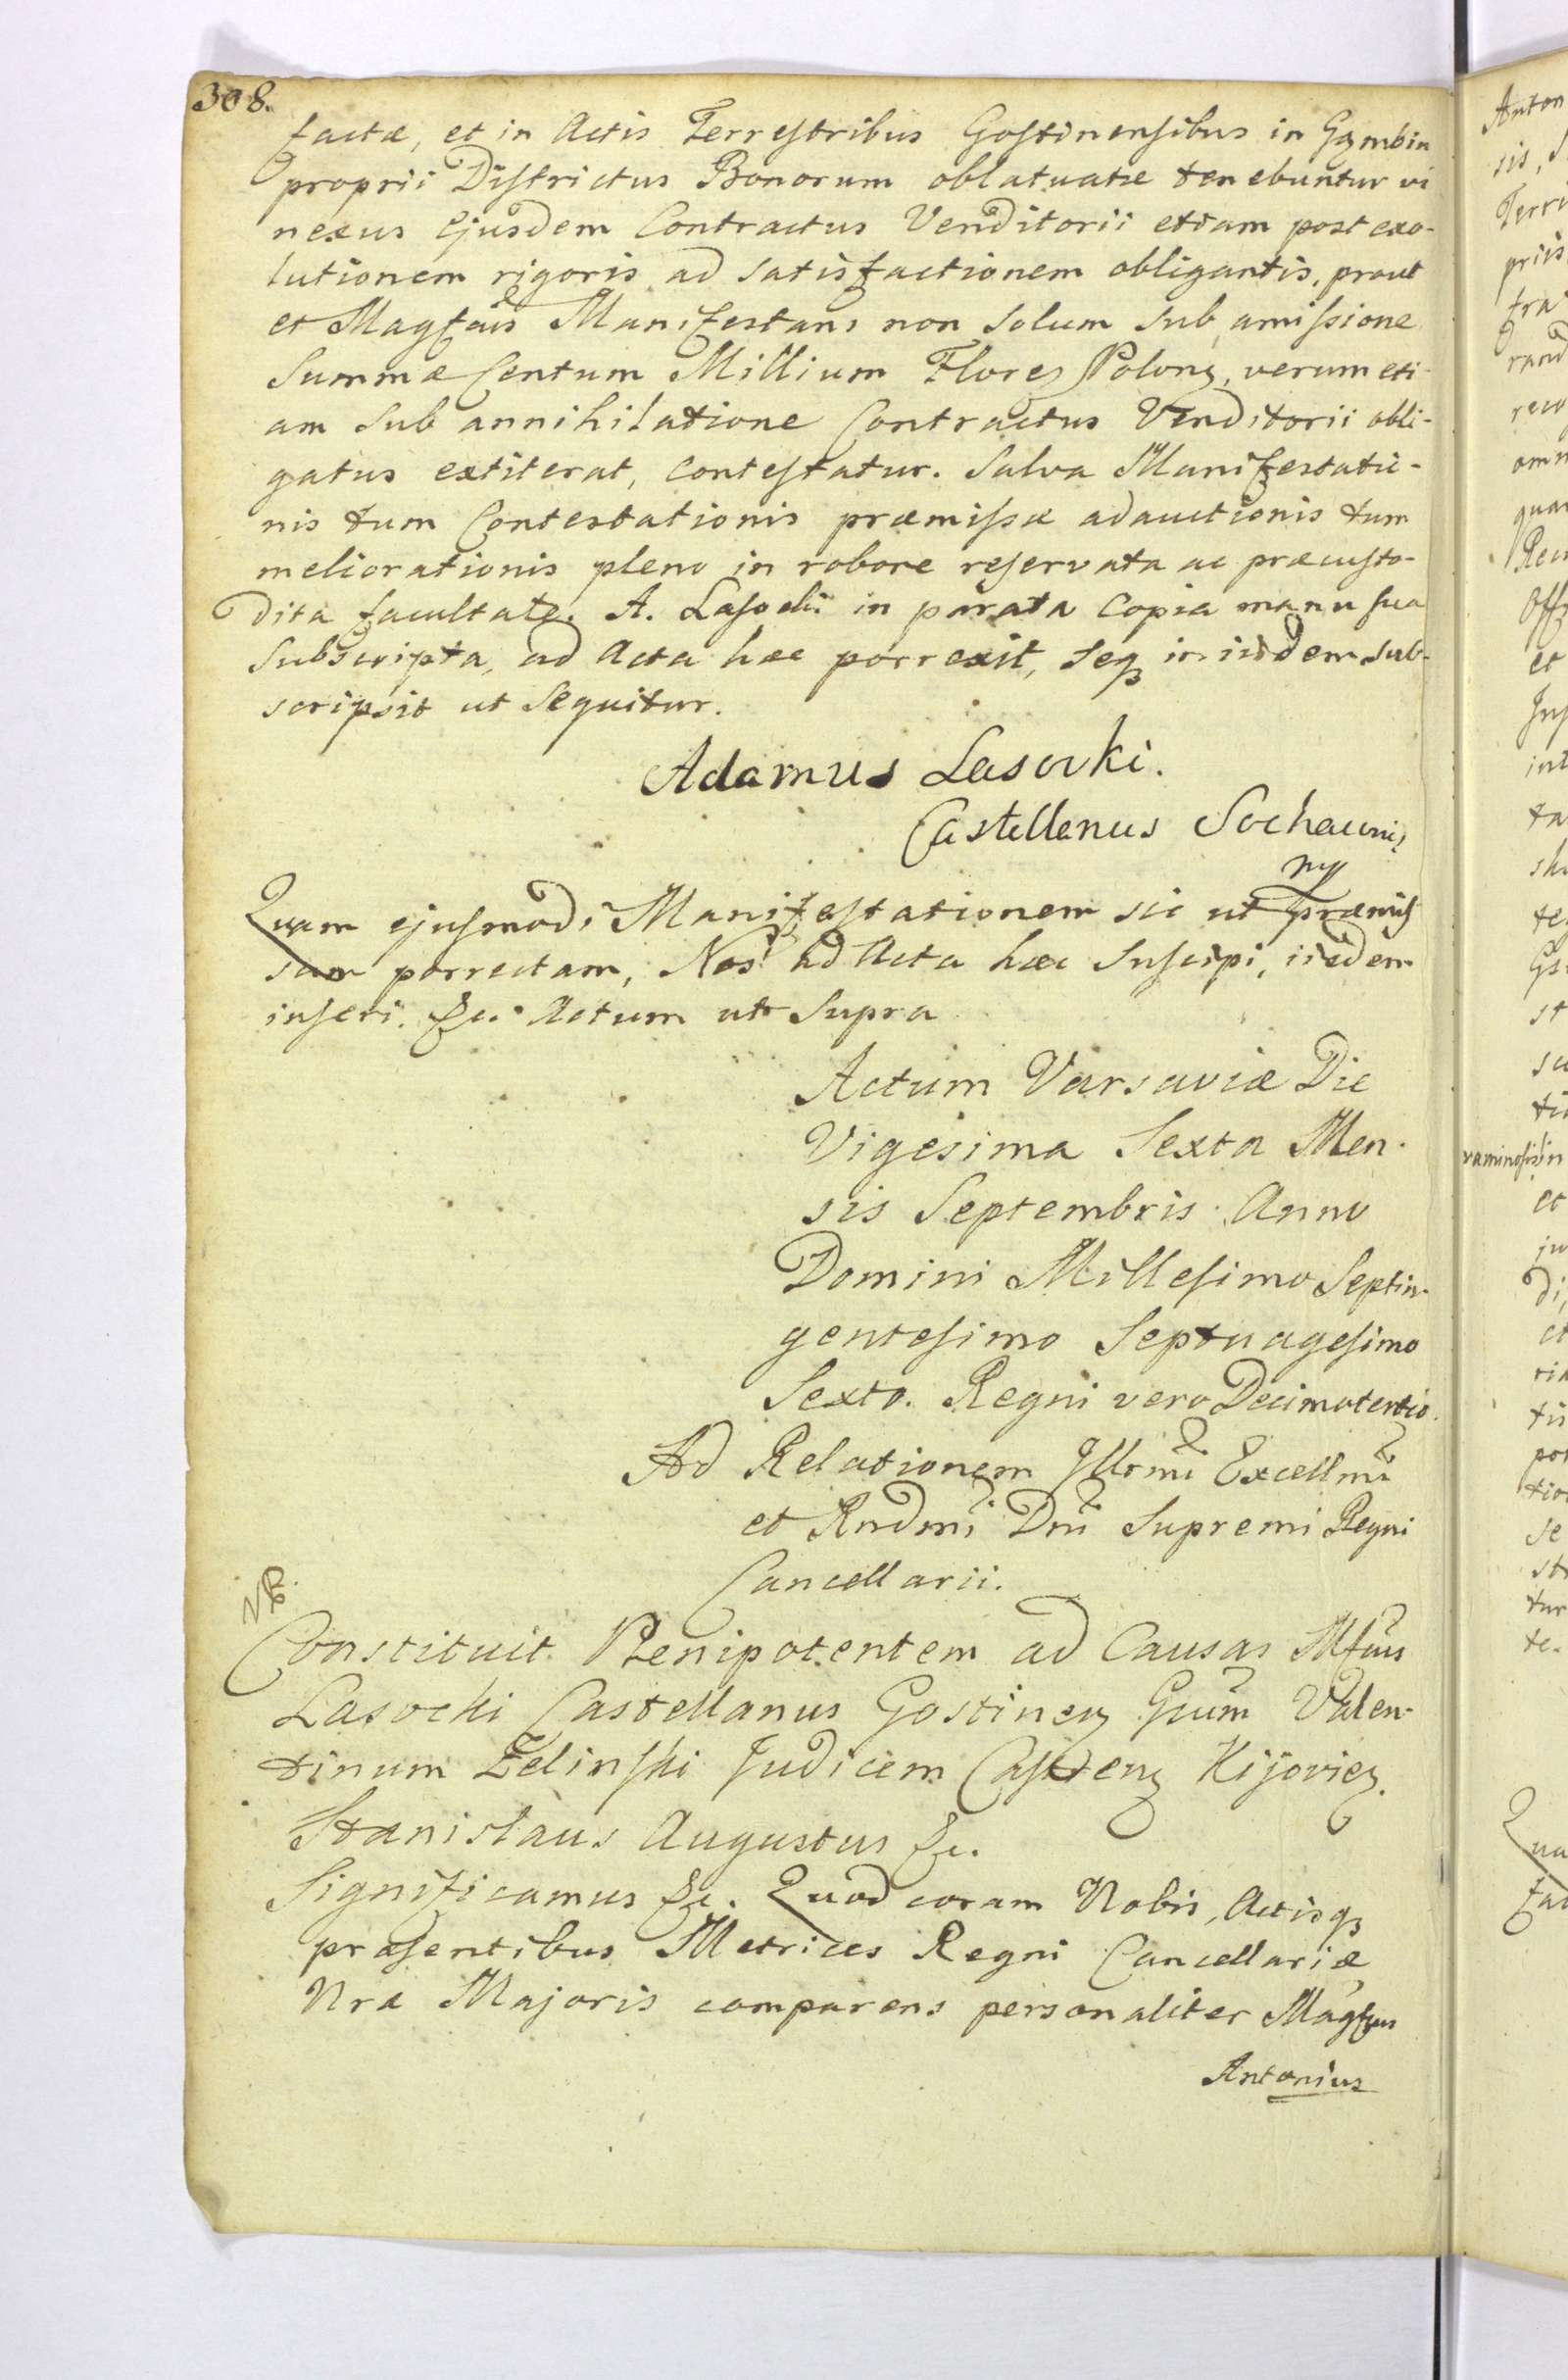 308.
factæ, et in Actis Terrestribus Gostinensibus in Gąmbin
proprii Districtus Bonorum oblatuatæ tenebuntur vi
nexus Ejusdem Contractus Venditorii etiam post exo-
lutionem rigoris ad satisfactionem obligantis, prout
et Magfcus Manifestans non solum sub amissione
Summæ Centum Millium Florez Polonz, verum eti-
am sub annihilatione Contractus Venditorii obli-
gatus extiterat, contestatur. Salva Manifestatio-
nis tum Contestationis præmissæ adauctionis tum
meliorationis pleno in robore reservata ac præcusto-
dita facultate. A. Lasocki in parata Copia manu sua
Subscripta, ad Acta hæc porrexit, seq3 in iisdem sub-
scripsit ut sequitur.
Adamus Lasocki.
Castellanus Sochac
mp
Quam ejusmodi Manifestationem sic ut præmis
sum porrectam, Nos ad Acta hæc suscipi, iisdem
inseri. &c. Actum ut Supra
Actum Varsaviæ Die
Vigesima Sexta Men-
sis Septembris Anno
Domini Millesimo Septin-
gentesimo Septuagesimo
Sexto. Regni vero Decimotertio.
Ad Relationem Illrmi Excellmi
et Rndmi Dni Supremi Regni
Cancellarii.
Constituit Plenipotentem ad Causas Mfcus
Lasocki Castellanus Gostinenz Gsum Valen-
tinum Zelinski Judicem Castrenz Kijoviez.
Stanislaus Augustus &c.
Significamus &c. Quod coram Nobis, Actisq3
præsentibus Metrices Regni Cancellariæ
Nræ Majoris comparens personaliter Magfcus
Antonius
Anton
sis,
Terr
priis
tra
rand
omn
quar
et
int
ta
te
st
su
raminosis in
et
ju
di
et
ria
pos
tio
se
tur
te.
Qua